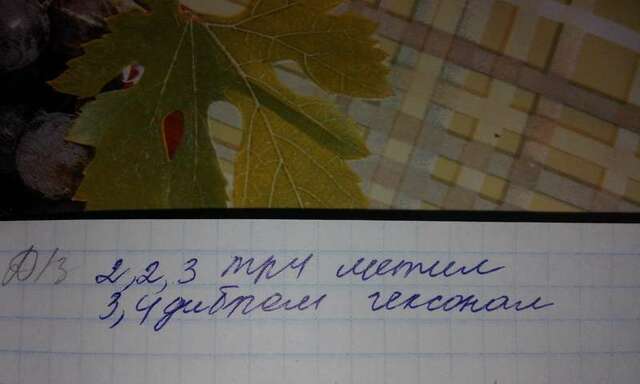 Д/З 2,2,3 три метил
3,4 дибром гексонал